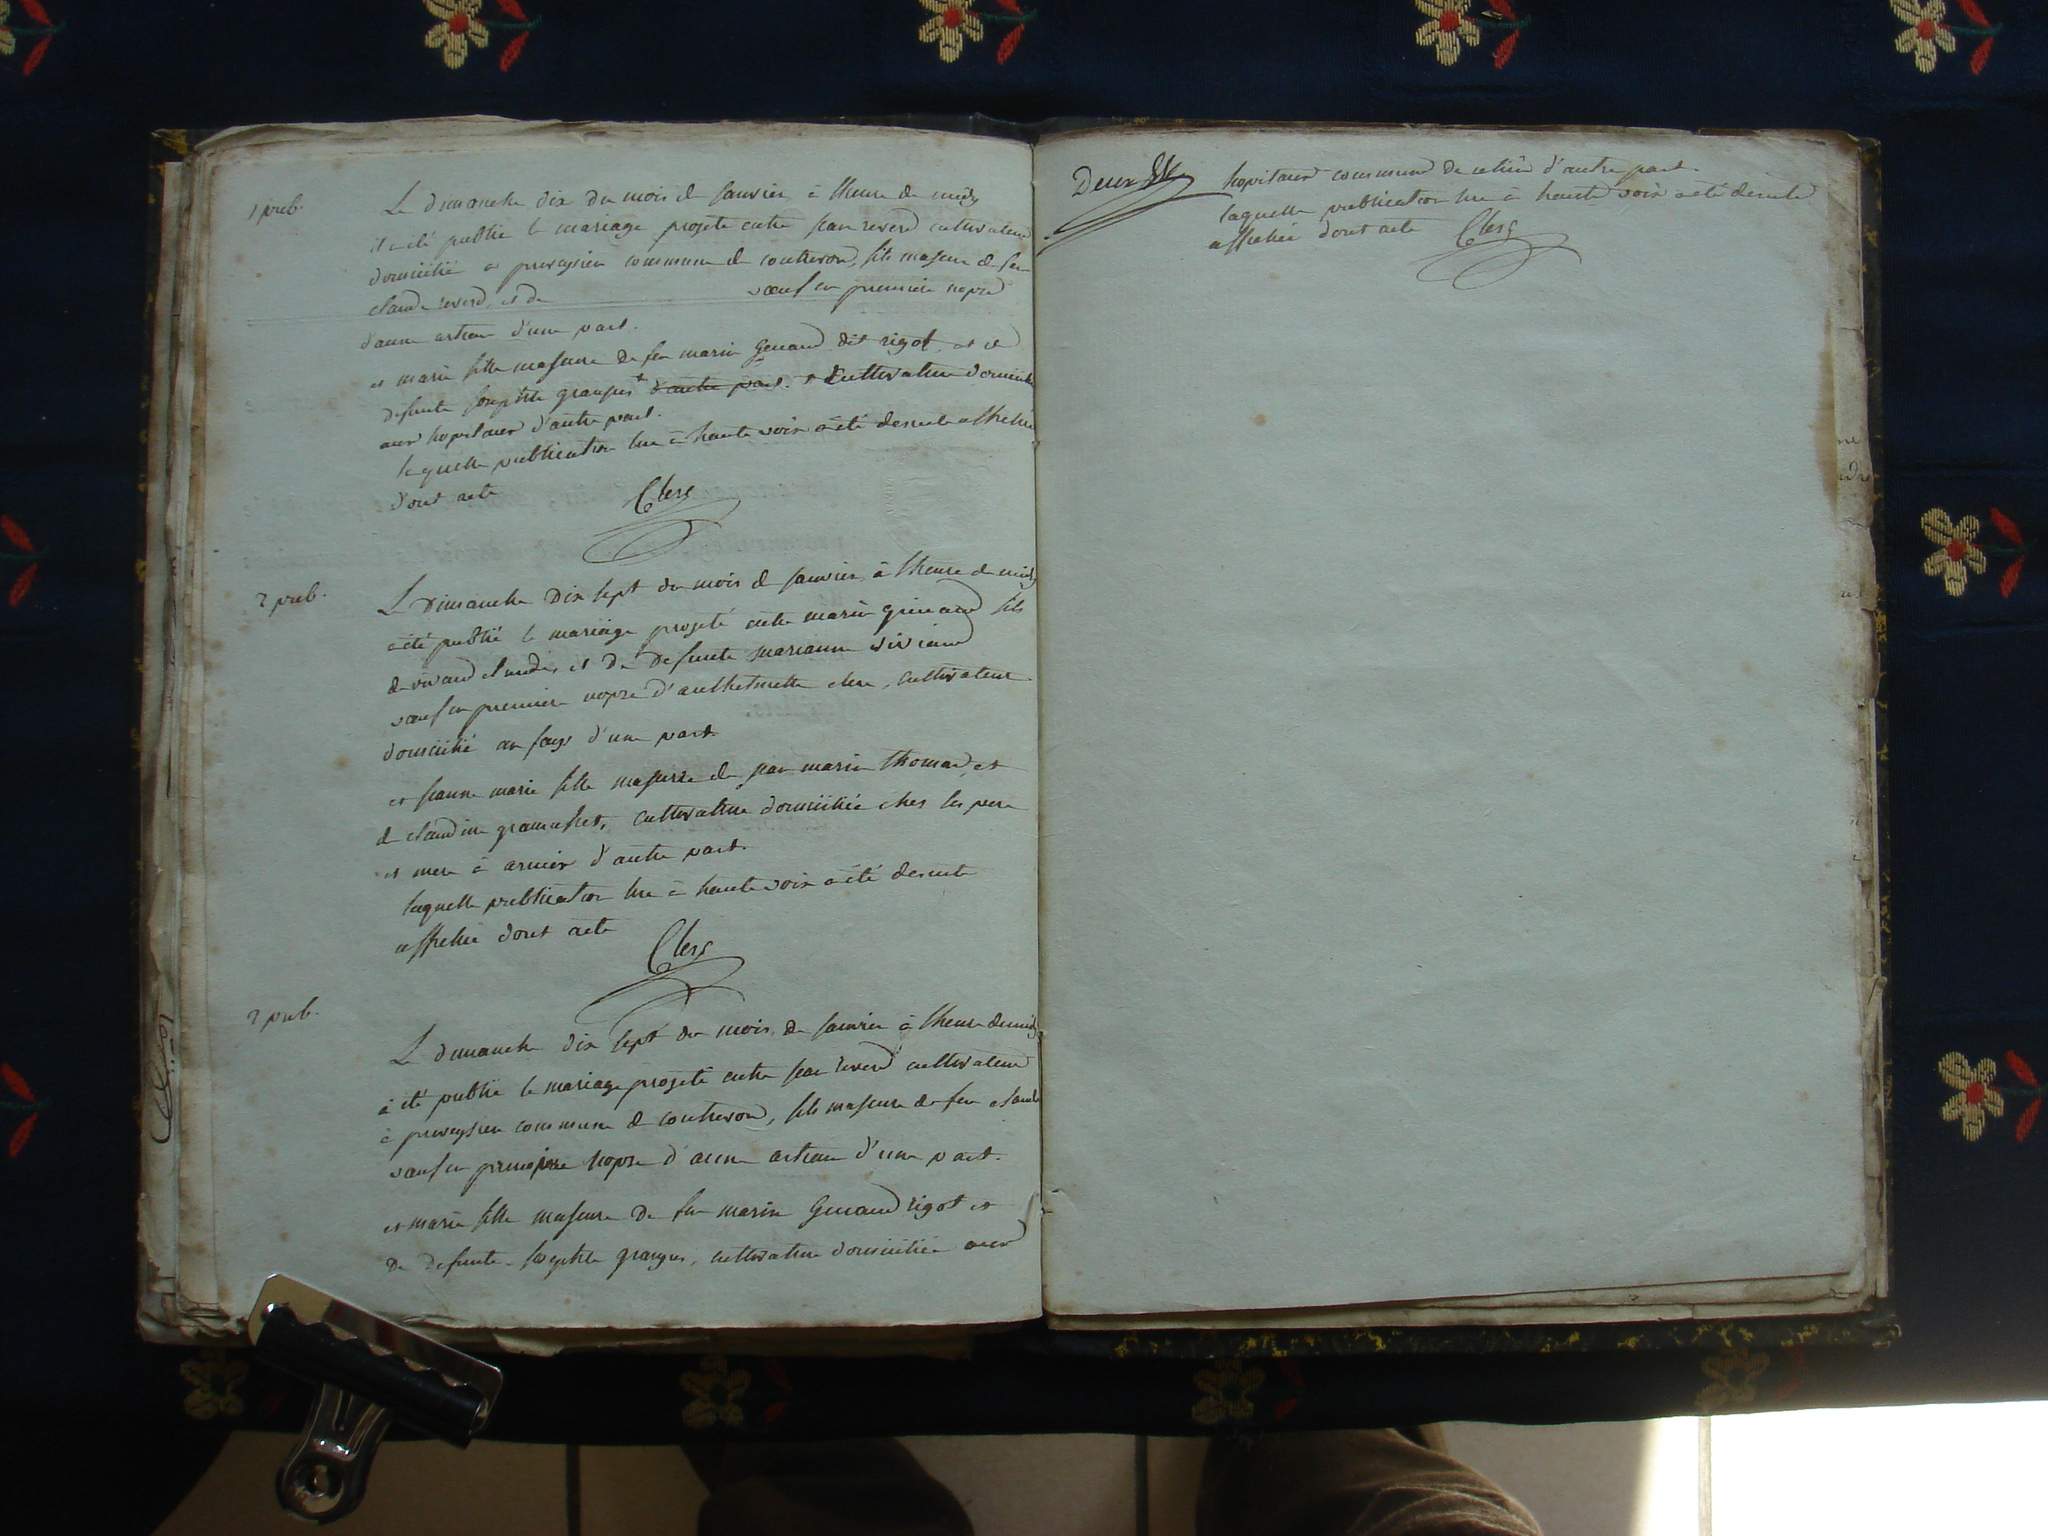 1 pub.
Le dimanche dix du mois de janvier à lheure de midy
il a été publié le mariage projeté entre jean reverd cultivateur
domicilié a preveysieu commune de couthevon, fils majeur de feu
claude reverd, et de veuf en premiere nopce
d'anne d'une part.
et marie fille majeure de feu marin genaud dit rigot et de
defunte josephte granges d'autre part. cultivatrice domiciliée
aux hopitaux d'autre part.
laquelle publication lue à haute voix a été de suite affichée
dont acte Clerc
2 pub.
Le Dimanche Dix sept du mois de janvier à lheure de midy
a été publié le mariage projeté entre marin genaud fils
de vivand claude, et de defunte marianne
veuf en premiere nopce d'anthelmette clerc, cultivateur
domicilié au fays d'une part
et jeanne marie fille majeure de jean marin thomas, et
de claudine, cultivatrice domiciliée ches les pere
et mere à armix d'autre part.
laquelle publication lue à haute voix a été de suite
affichée dont acte Clerc
2 pub.
Le dimanche dix sept du mois de janvier à lheure de midy
à été publié le mariage projeté entre jean reverd cultivateur
à preveysieu commune de couthevon, fils majeur de feu claude
veuf en premiere nopce d'anne d'une part.
et marie fille majeure de feu marin genaud rigot et
de defunte josephte granges, cultivatrice domiciliée aux
Deux
hopitaux commune de d'autre part.
laquelle publication lue à haute voix a été de suite
affichée dont acte Clerc